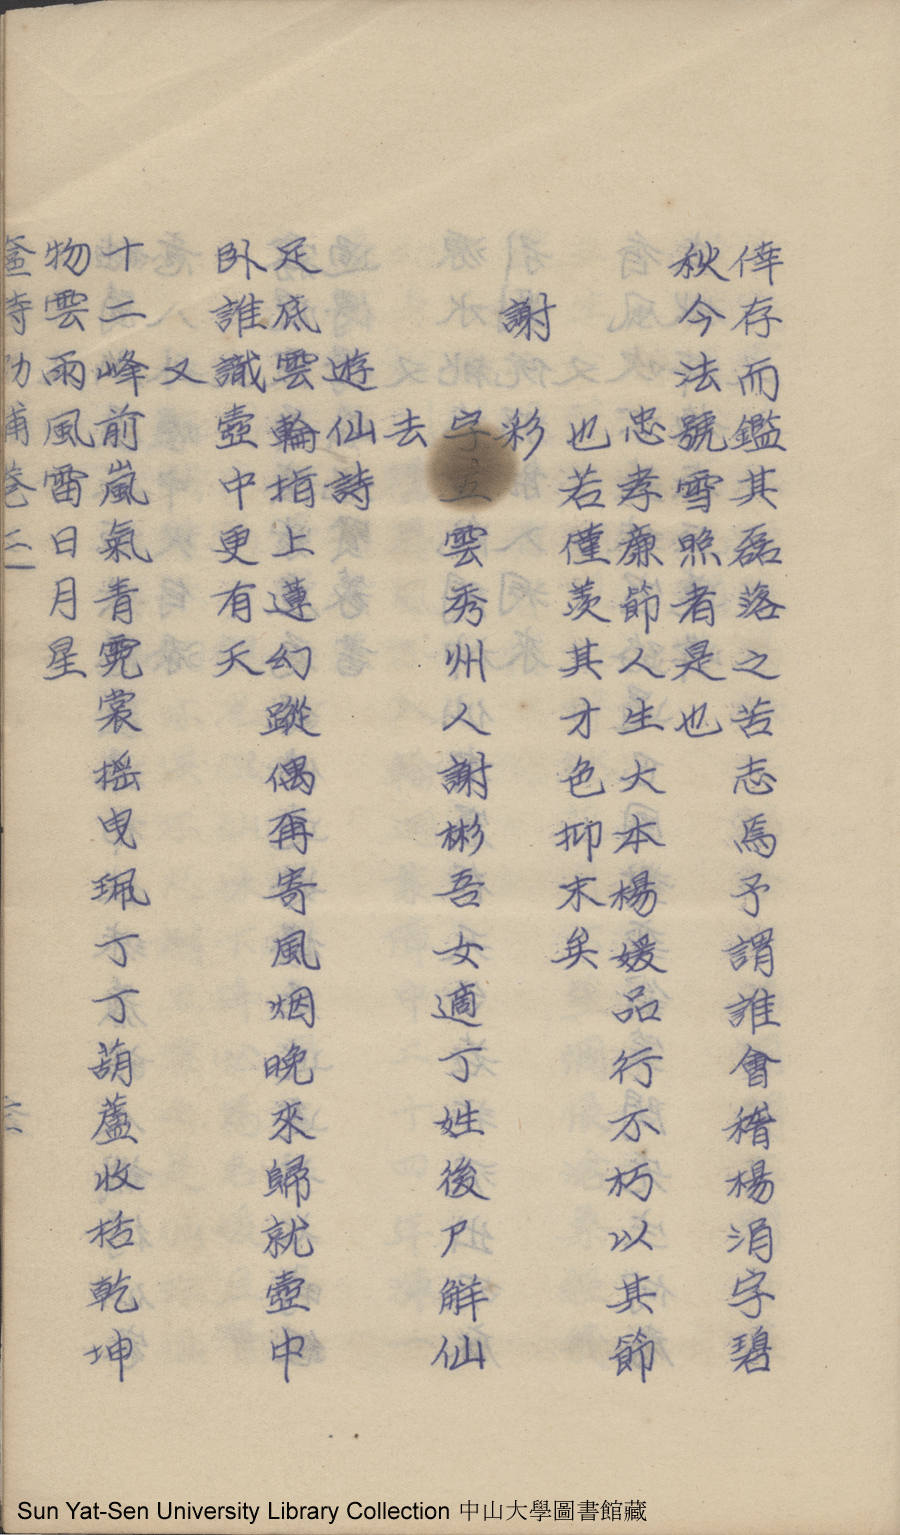 倖存而鑑其磊落之苦志焉予謂誰會稽楊涓字碧
秋今法號雪照者是也
忠孝廉節人生大本楊媛品行不朽以其節
也若僅羨其才色抑末矣
謝彩
字五雲秀州人謝彬吾女適丁姓後尸解仙
去
遊仙詩
足底雲輪指上蓮幻蹤偶再寄風烟晚來歸就壺中
卧誰識壺中更有天
又
十二峰前嵐氣青霓裳搖曳珮丁丁葫蘆收括乾坤
物雲雨風雷日月星
Sun Yat-Sen University Library Collection 中山大學圖書館藏